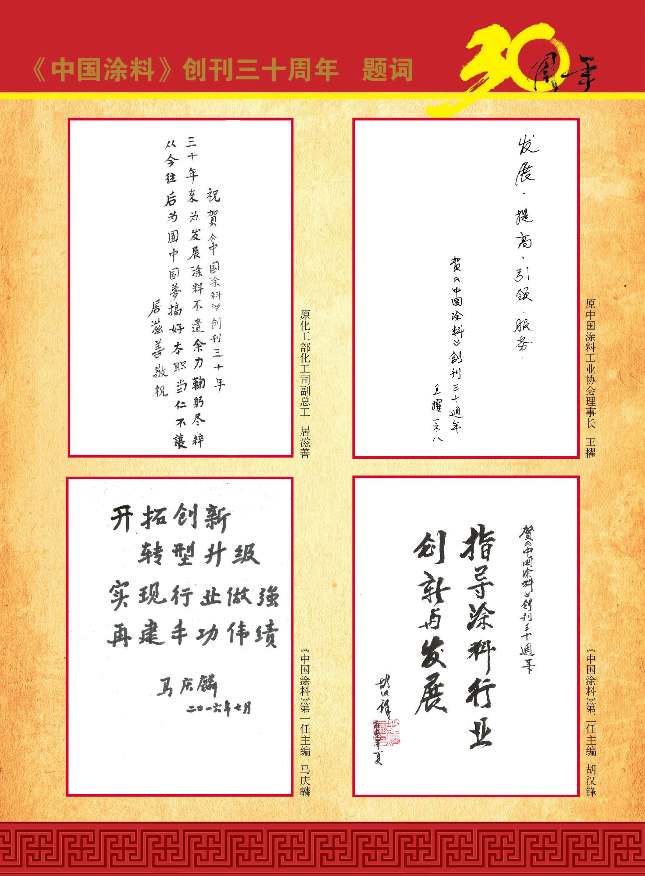 《中国涂料》创刊三十周年 题词
30周年
祝賀《中国涂料》創刊三十年
三十年来为发展涂料不遺余力鞠躬尽粹
从今往后为圓中国梦搞好本职当仁不讓
居滋善敬祝
原化工部化工司副总工 居滋善
发展·提高·引领·服务·
賀《中国涂料》創刊三十週年
王擢
原中国涂料工业协会理事长 王擢
开拓创新
转型升级
实现行业做强
再建丰功伟绩
马庆麟
二〇一六年七月
《中国涂料》第一任主编 马庆麟
賀《中国涂料》創刊三十週年
指导涂料行业
创新与发展
《中国涂料》第二任主编 胡汉锋